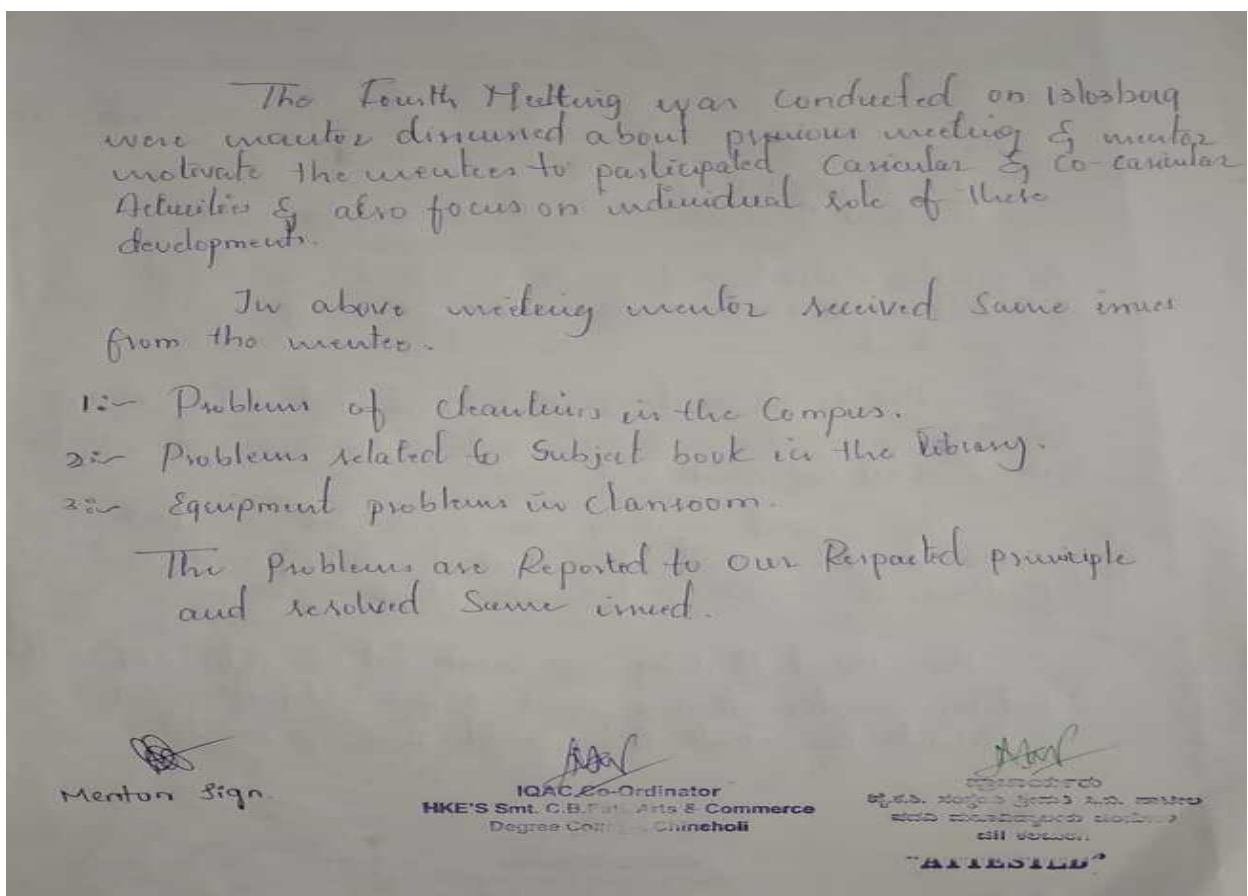 The Fourth Meeting was conducted on 13/03/2019
were mentor discussed about previous meeting & mentor
motivate the mentees to participated Caricular & Co-caricular
Activities & also focus on individual role of these
developments.
In above meeting mentor received Same issues
from the mentee.
1:- Problems of cleanleins in the Compus.
2:- Problems related to Subject book in the library.
3:- Equipment problems in Classroom.
The Problems are Reported to our Respacted principle
and resolved Same issued.
Mentor Sign.
IQAC Co-Ordinator
HKE'S Smt. C.B. Patil Arts & Commerce
Degree College Chincholi
ಪ್ರಾಚಾರ್ಯರು
"ATTESTED"